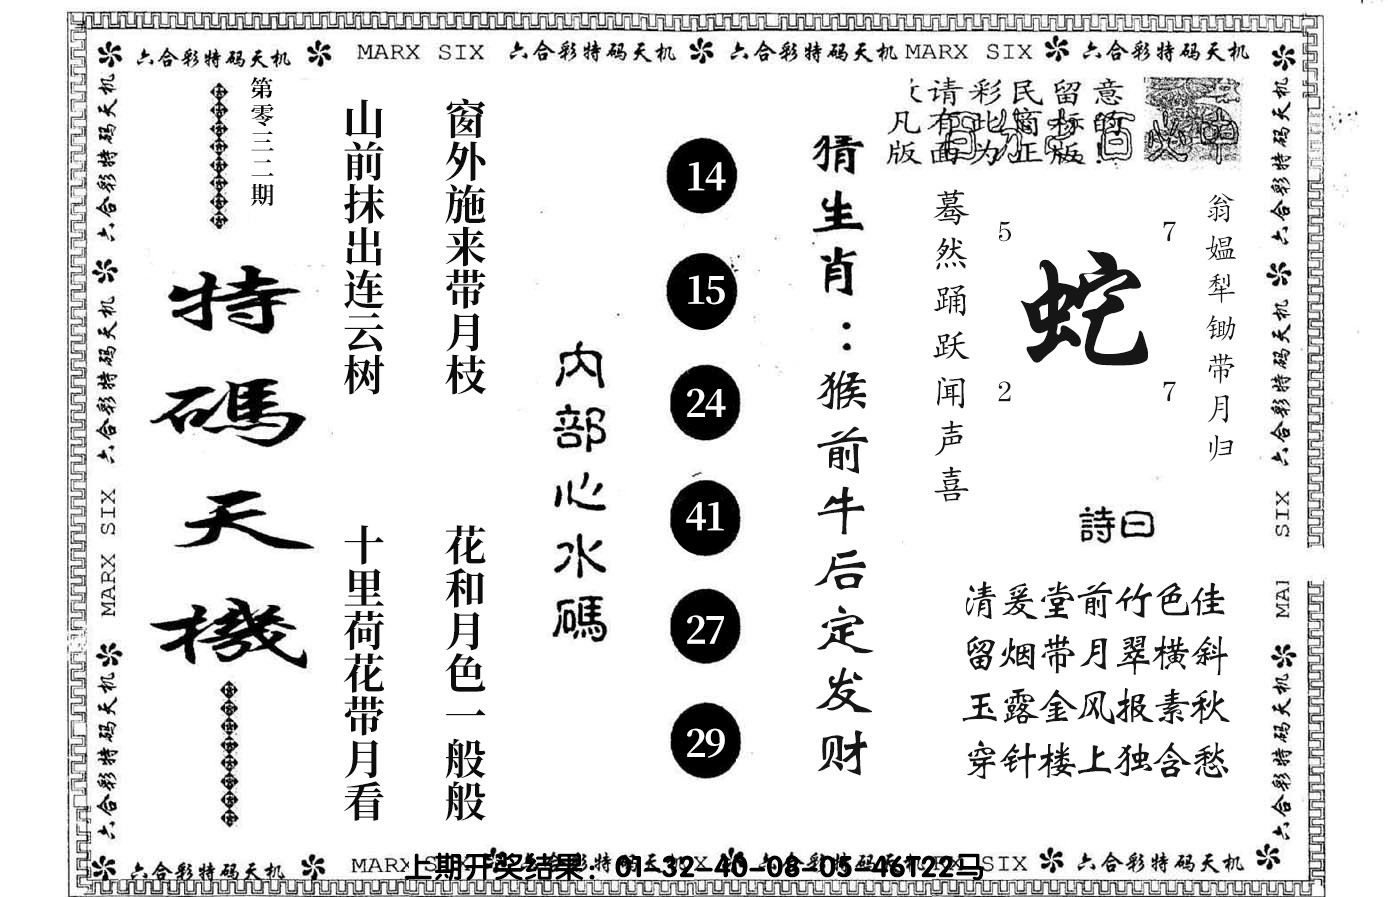 六合彩特码天机 MARX SIX 六合彩特码天机 六合彩特码天机 MARX SIX 六合彩特码天机
六合彩特码天机
六合彩特码天机
MARX SIX
六合彩特码天机
第零三二期
特碼天機
山前抹出连云树
十里荷花带月看
窗外施来带月枝
花和月色一般般
内部心水碼
14
15
24
41
27
29
猜生肖：猴前牛后定发财
请彩民留意
凡有此窗标的
版面为正版!
蓦然踊跃闻声喜
5
7
蛇
2
7
翁媪犁锄带月归
詩曰
清爰堂前竹色佳
留烟带月翠横斜
玉露金风报素秋
穿针楼上独含愁
六合彩特码天机
六合彩特码天机
SIX
MAI
六合彩特码天机
六合彩特码天机 MARX SIX 六合彩特码天机 SIX 六合彩特码天机
上期开奖结果：01-32-40-08-05-46T22马